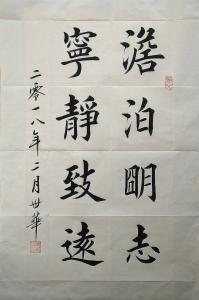 澹泊明志
寧靜致遠
二零一八年二月世華